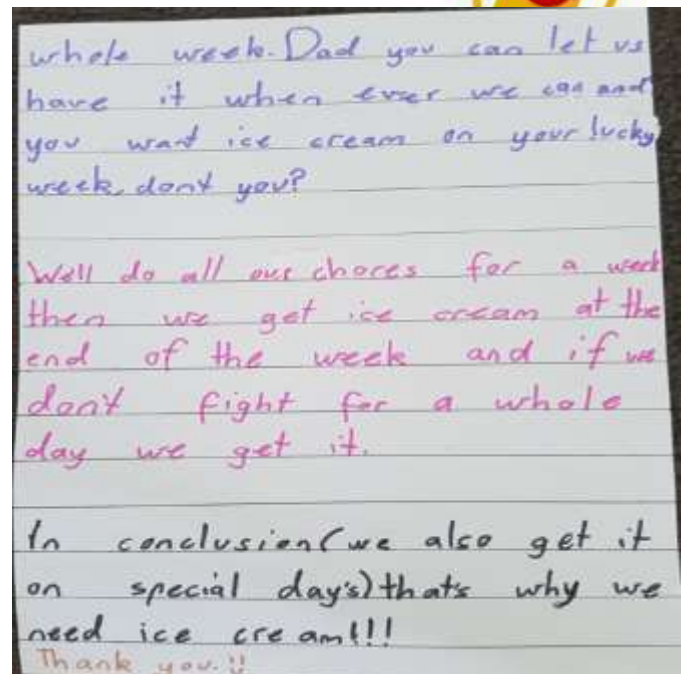 whole week. Dad you can let us
have it when ever we can and
you want ice cream on your lucky
week, don't you?
We'll do all our chores for a week
then we get ice cream at the
end of the week and if we
don't fight for a whole
day we get it.
In conclusion (we also get it
on special day's) that's why we
need ice cream!!!
Thank you. !!